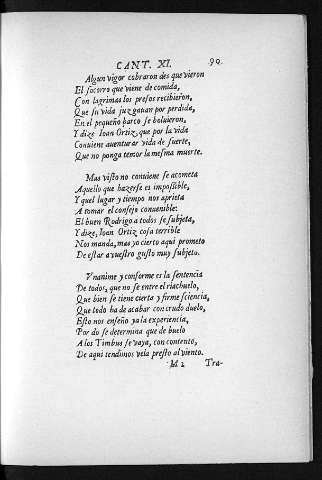 CANT. XI. 90
Algun vigor cobraron des que vieron
El socorro que viene de comida,
Con lagrimas los presos recibieron,
Que su vida juzgauan por perdida,
En el pequeño barco se boluieron,
Y dize Ioan Ortiz, que por la vida
Conuiene auenturar vida de suerte,
Que no ponga temor la mesma muerte.
Mas visto no conuiene se acometa
Aquello que hazerse es impossible,
Y quel lugar y tiempo nos aprieta
A tomar el consejo conuenible:
El buen Rodrigo a todos se subjeta,
Y dize, Ioan Ortiz cosa terrible
Nos manda, mas yo cierto aqui prometo
De estar a vuestro gusto muy subjeto.
Vnanime y conforme es la sentencia
De todos, que no se entre el riachuelo,
Que bien se tiene cierta y firme sciencia,
Que todo ha de acabar con crudo duelo,
Esto nos enseño ya la experiencia,
Por do se determina que de buelo
A los Timbus se vaya, con contento,
De aqui tendimos vela presto al viento.
M 2 Tra-